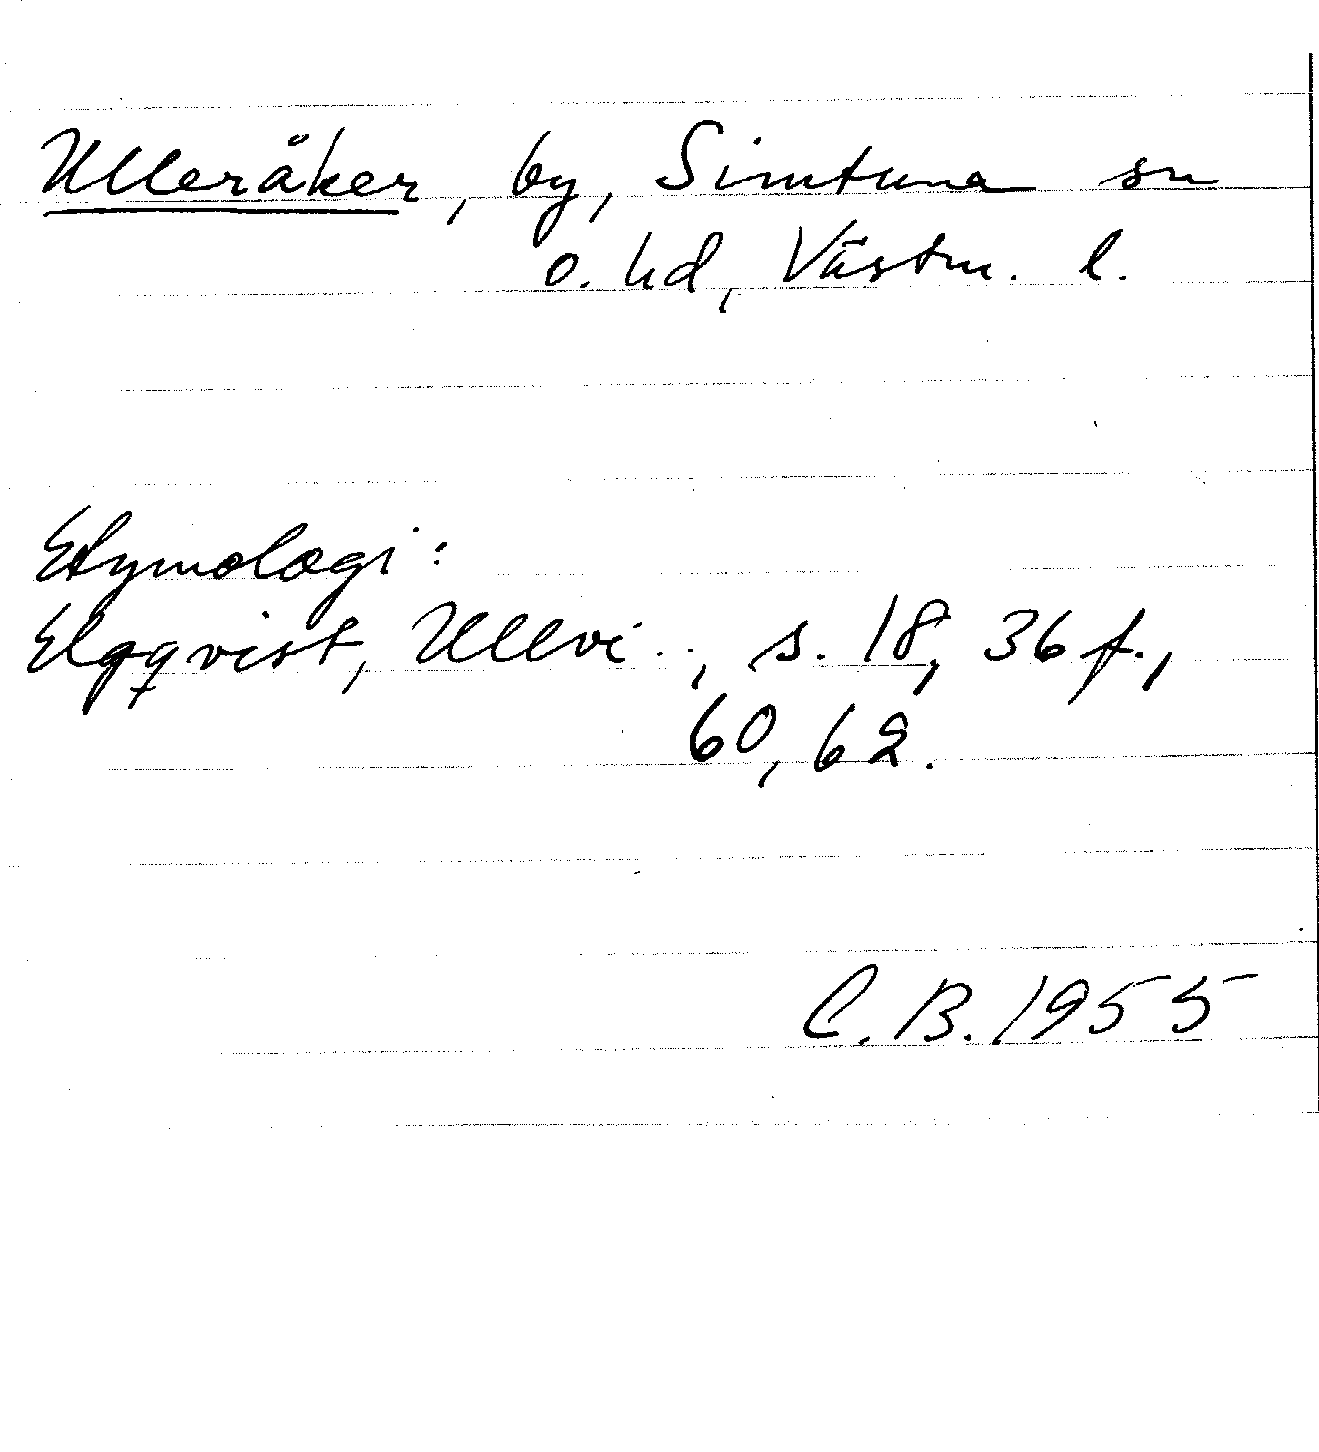 Ulleråker, by, Simtuna sn
o. hd, Västm. l.
Etymologi:
Elgqvist, Ullvi.., s. 18, 36 f.,
60, 62.
C. B. 1955